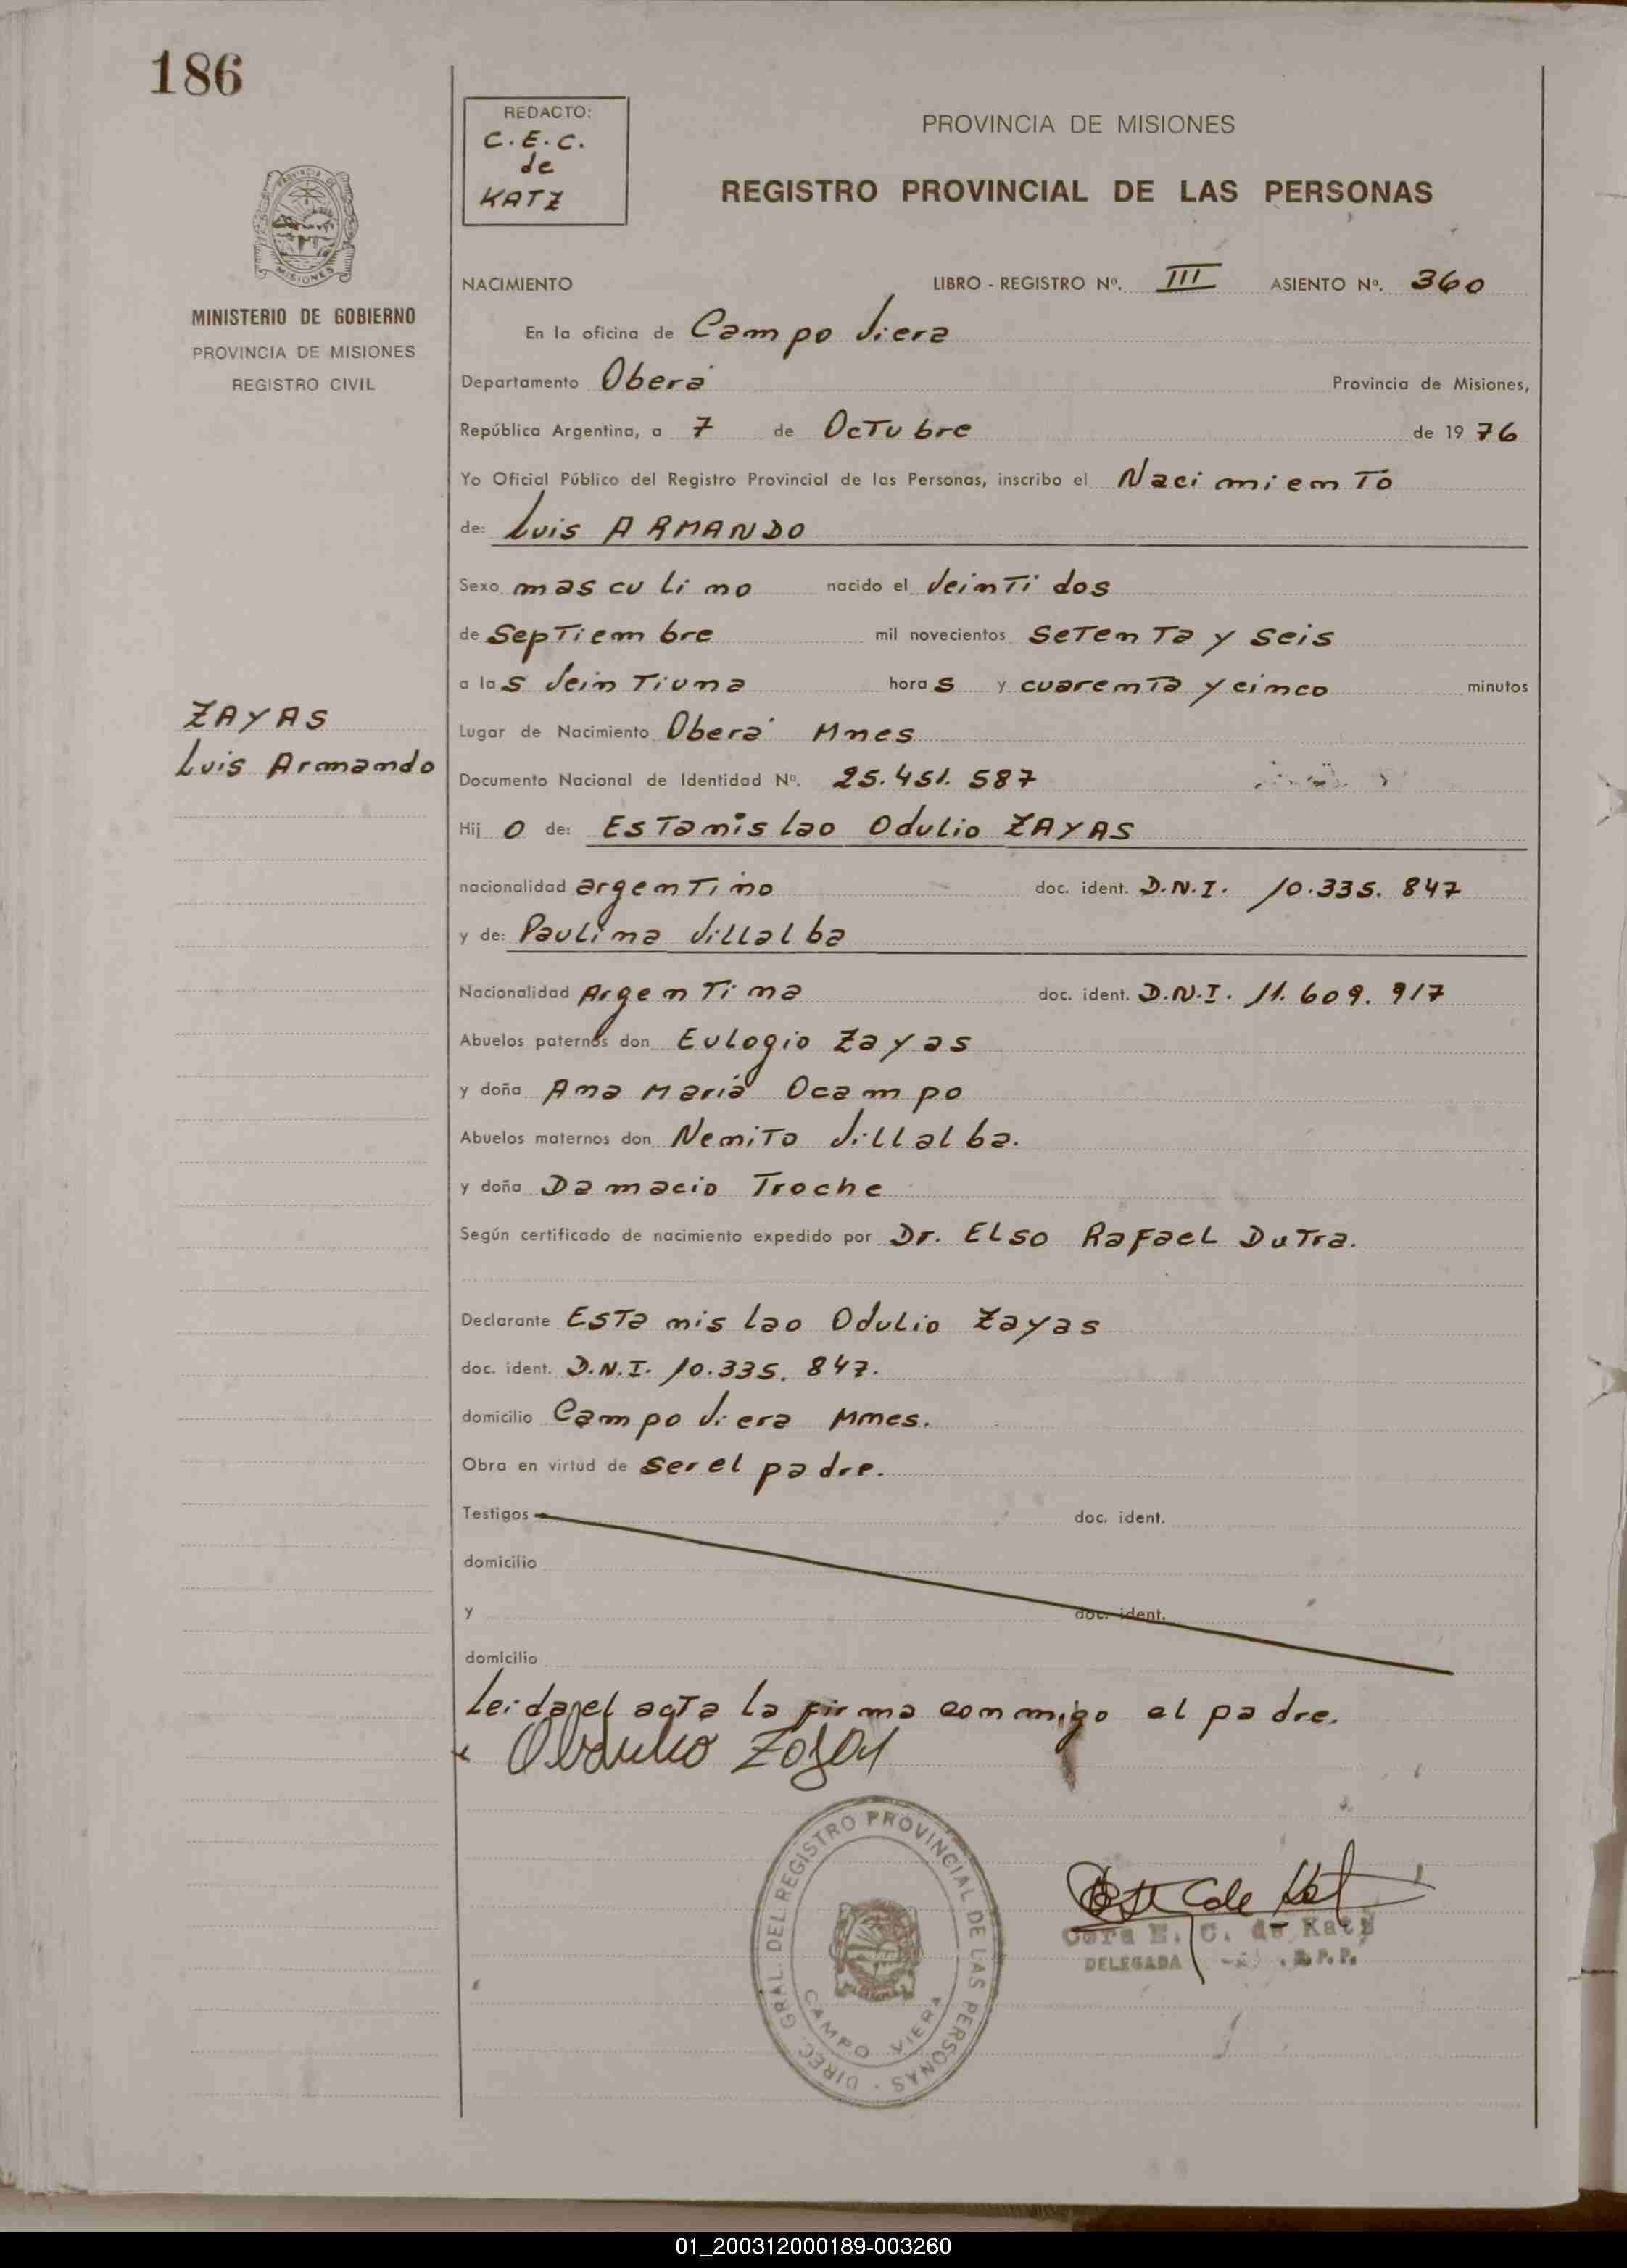 186
REDACTO:
C.E.C.
de
KATZ
PROVINCIA DE MISIONES
REGISTRO PROVINCIAL DE LAS PERSONAS
PROVINCIA DE
MISIONES
MINISTERIO DE GOBIERNO
PROVINCIA DE MISIONES
REGISTRO CIVIL
NACIMIENTO LIBRO - REGISTRO Nº. III ASIENTO Nº. 360
En la oficina de Campo Viera
Departamento Oberá Provincia de Misiones,
República Argentina, a 7 de Octubre de 1976
Yo Oficial Público del Registro Provincial de las Personas, inscribo el Nacimiento
de: Luis ARMANDO
Sexo masculino nacido el Veintidos
de Septiembre mil novecientos Setenta y seis
a las Veintiuna horas y cuarenta y cinco minutos
ZAYAS
Luis Armando
Lugar de Nacimiento Oberá Mnes
Documento Nacional de Identidad Nº. 25.451.587
Hijo de: Estanislao Odulio ZAYAS
nacionalidad argentino doc. ident. D.N.I. 10.335.847
y de: Paulina Villalba
Nacionalidad Argentina doc. ident. D.N.I. 11.609.917
Abuelos paternos don Eulogio Zayas
y doña Ana María Ocampo
Abuelos maternos don Nemito Villalba.
y doña Damacio Troche
Según certificado de nacimiento expedido por Dr. Elso Rafael Dutra.
Declarante Estanislao Odulio Zayas
doc. ident. D.N.I. 10.335.847.
domicilio Campo Viera Mnes.
Obra en virtud de ser el padre.
Testigos doc. ident.
domicilio
y doc. ident.
domicilio
Leida el acta la firma conmigo el padre.
DIREC. GRAL. DEL REGISTRO PROVINCIAL DE LAS PERSONAS
CAMPO VIERA
Cora E. C. de Katz
DELEGADA R.P.P.
01_200312000189-003260